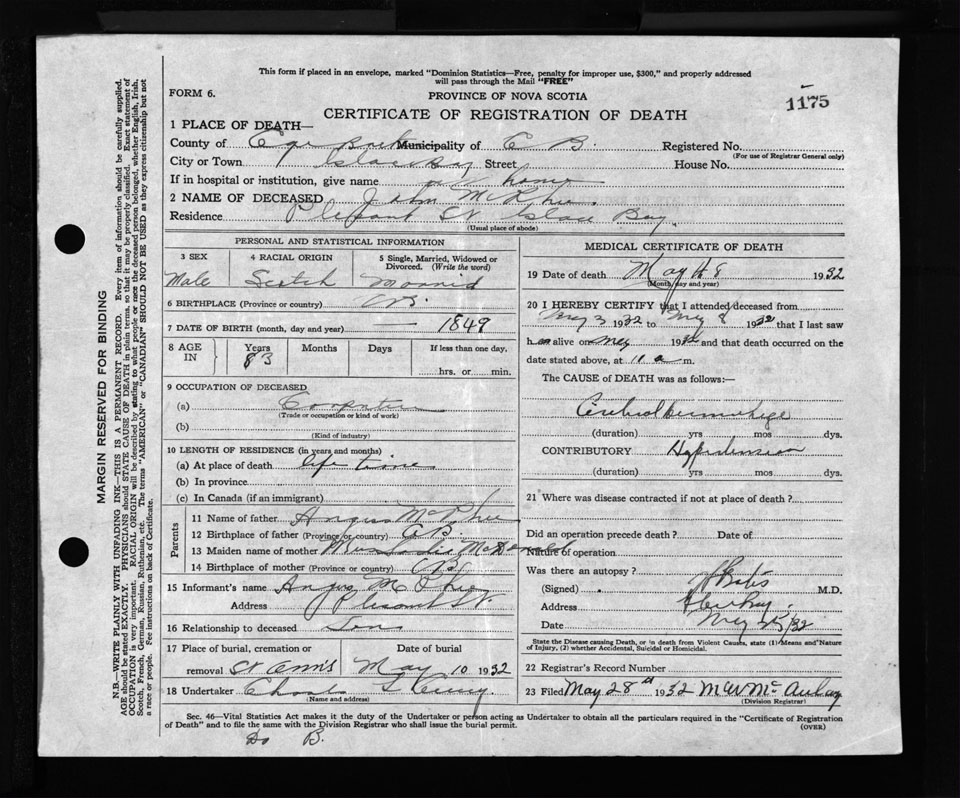 This form if placed in an envelope, marked "Dominion Statistics—Free, penalty for improper use, $300," and properly addressed
will pass through the Mail "FREE"
FORM 6.
PROVINCE OF NOVA SCOTIA
1175
CERTIFICATE OF REGISTRATION OF DEATH
1 PLACE OF DEATH—
County of Cape Breton Municipality of C B. Registered No.
(For use of Registrar General only)
City or Town Glace Bay Street House No.
If in hospital or institution, give name at home
2 NAME OF DECEASED John McPhee.
Residence Plesant St Glace Bay
(Usual place of abode)
PERSONAL AND STATISTICAL INFORMATION
3 SEX
Male
4 RACIAL ORIGIN
Scotch
5 Single, Married, Widowed or Divorced. (Write the word)
6 BIRTHPLACE (Province or country) C B.
7 DATE OF BIRTH (month, day and year) 1849
8 AGE IN Years Months Days If less than one day,
83 hrs. or min.
9 OCCUPATION OF DECEASED
(a) Carpenter
(Trade or occupation or kind of work)
(b)
(Kind of industry)
10 LENGTH OF RESIDENCE (in years and months)
(a) At place of death life time
(b) In province
(c) In Canada (if an immigrant)
Parents
11 Name of father Angus McPhee
12 Birthplace of father (Province or country) C B
13 Maiden name of mother
14 Birthplace of mother (Province or country) C B
15 Informant's name Angus McPhee
Address Plesant St
16 Relationship to deceased Son
17 Place of burial, cremation or Date of burial
removal St Anns May 10 1932
18 Undertaker
(Name and address)
MEDICAL CERTIFICATE OF DEATH
19 Date of death May 8 1932
(Month, day and year)
20 I HEREBY CERTIFY that I attended deceased from
May 3 1932 to May 8 1932 that I last saw
h alive on May 1932 and that death occurred on the
date stated above, at 11 a m.
The CAUSE of DEATH was as follows:—
Cerebral hemorrhage
(duration) yrs mos dys.
CONTRIBUTORY Hypertension
(duration) yrs mos dys.
21 Where was disease contracted if not at place of death?
Did an operation precede death? Date of
Nature of operation
Was there an autopsy?
(Signed) M.D.
Address Glace Bay.
Date May 25/32
State the Disease causing Death, or in death from Violent Causes, state (1) Means and Nature
of Injury, (2) whether Accidental, Suicidal or Homicidal.
22 Registrar's Record Number
23 Filed May 28th 1932 McAulay
(Division Registrar)
Sec. 46—Vital Statistics Act makes it the duty of the Undertaker or person acting as Undertaker to obtain all the particulars required in the "Certificate of Registration
of Death" and to file the same with the Division Registrar who shall issue the burial permit.
(OVER)
MARGIN RESERVED FOR BINDING
N.B.—WRITE PLAINLY WITH UNFADING INK—THIS IS A PERMANENT RECORD. Every item of information should be carefully supplied.
AGE should be stated EXACTLY. PHYSICIANS should STATE CAUSE OF DEATH in plain terms, so that it may be properly classified. Exact statement of
OCCUPATION is very important. RACIAL ORIGIN will be described by stating to what people or race the deceased person belonged, whether English, Irish,
Scotch, French, German, Russian, Ruthenian, etc. The terms "AMERICAN" or "CANADIAN" SHOULD NOT BE USED as they express citizenship but not
a race or people. See instructions on back of Certificate.